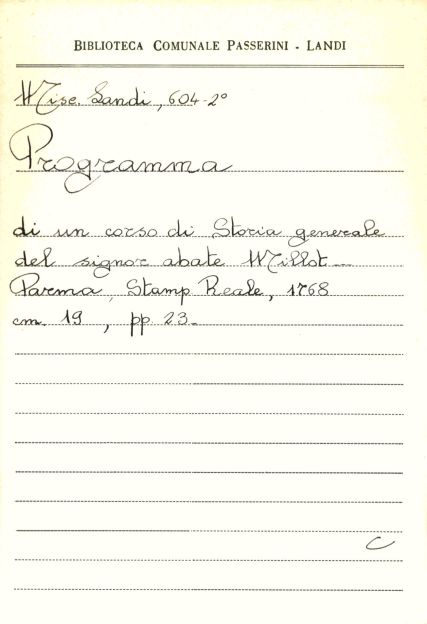 BIBLIOTECA COMUNALE PASSERINI - LANDI
Misc. Landi, 604-2°
Programma
di un corso di Storia generale
del signor abate Millot -
Parma, Stamp Reale, 1768
cm. 19, pp. 23 -
C